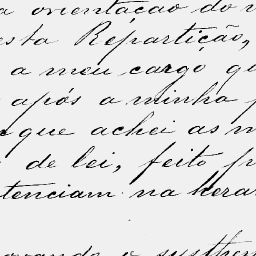 a orientação do
esta Repartição,
a meu cargo
após a minha
que achei as
de lei, feito
tenciam na